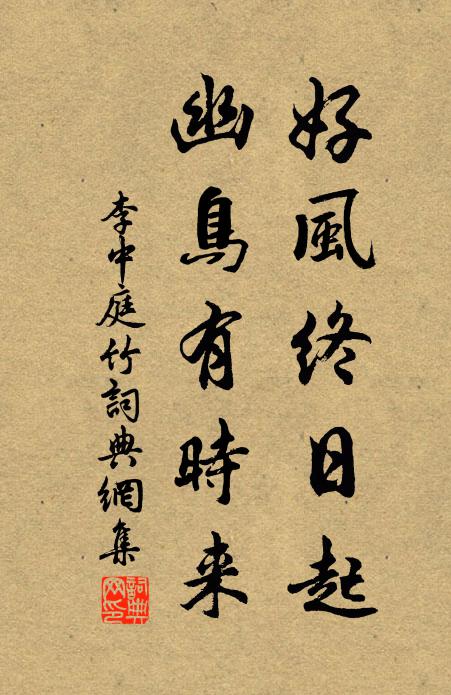 好風終日起
幽鳥有時来
李中庭竹詞典網集
詞典网印